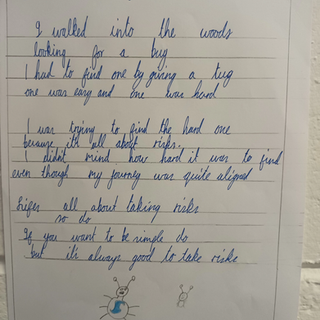 I walked into the woods
looking for a bug
I had to find one by giving a tug
one was easy and one was hard
I was trying to find the hard one
because it's all about risks.
I didn't mind how hard it was to find
even though my journey was quite aligned
Lifes all about taking risks
so do
If you want to be simple do
but it's always good to take risks